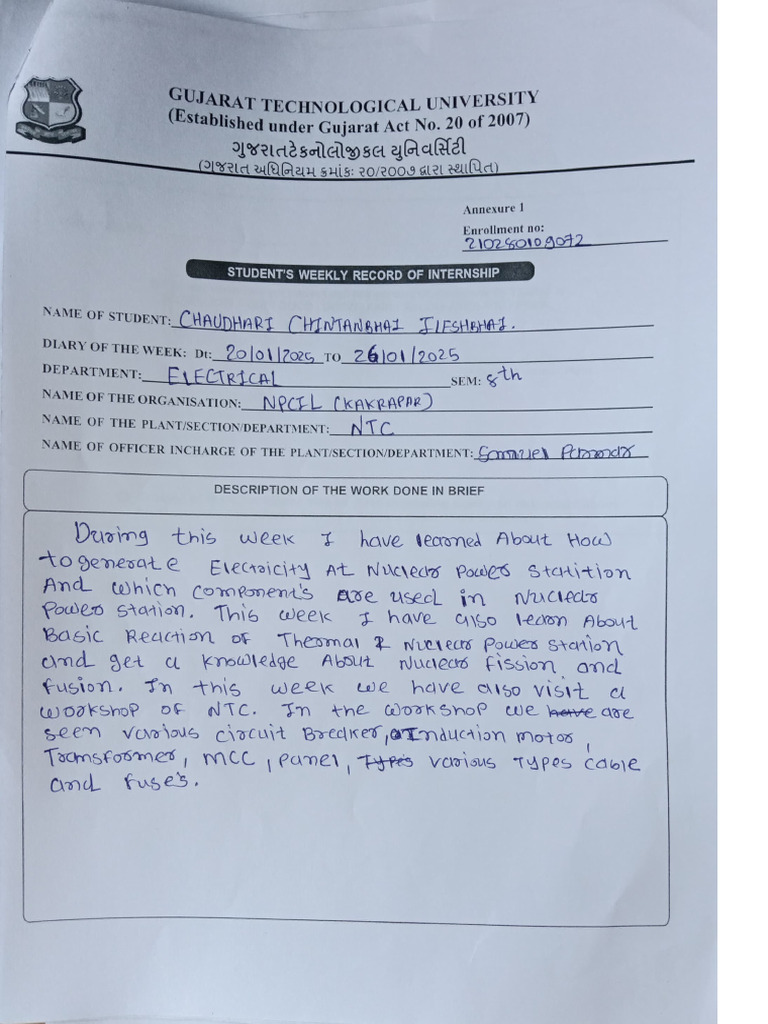 GUJARAT TECHNOLOGICAL UNIVERSITY
(Established under Gujarat Act No. 20 of 2007)
ગુજરાતટેકનોલોજીકલ યુનિવર્સિટી
(ગુજરાત અધિનિયમ ક્રમાંકઃ ૨૦/૨૦૦૭ દ્વારા સ્થાપિત)
Annexure 1
Enrollment no:
210280109072
STUDENT'S WEEKLY RECORD OF INTERNSHIP
NAME OF STUDENT: CHAUDHARI CHINTANBHAI ILESHBHAI.
DIARY OF THE WEEK: Dt: 20/01/2025 TO 26/01/2025
DEPARTMENT: ELECTRICAL SEM: 8th
NAME OF THE ORGANISATION: NPCIL (KAKRAPAR)
NAME OF THE PLANT/SECTION/DEPARTMENT: NTC
NAME OF OFFICER INCHARGE OF THE PLANT/SECTION/DEPARTMENT: Samuel Parmar
DESCRIPTION OF THE WORK DONE IN BRIEF
During this week I have learned About How
to generate Electricity At Nuclear Power Statition
And which component's are used in Nuclear
Power station. This week I have also learn About
Basic Reaction of Thermal & Nuclear Power Station
and get a knowledge About Nuclear fission and
fusion. In this week we have also visit a
workshop of NTC. In the workshop we have are
seen various circuit Breaker, Induction motor,
Transformer, MCC, panel, Types various Types cable
and fuse's.